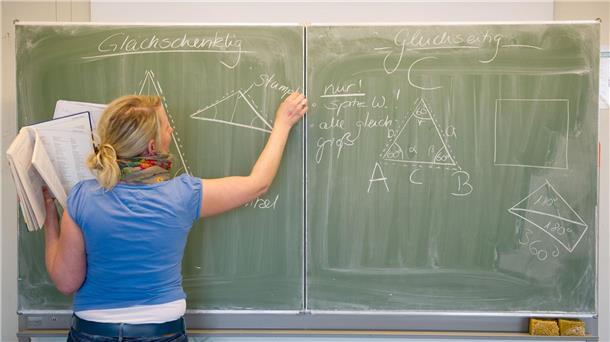 Gleichschenklig
stumpf
Gleichseitig
nur!
spitz W.!
alle gleich
groß
C
b
a
60°
60°
A
c
B
180°
180°
360°